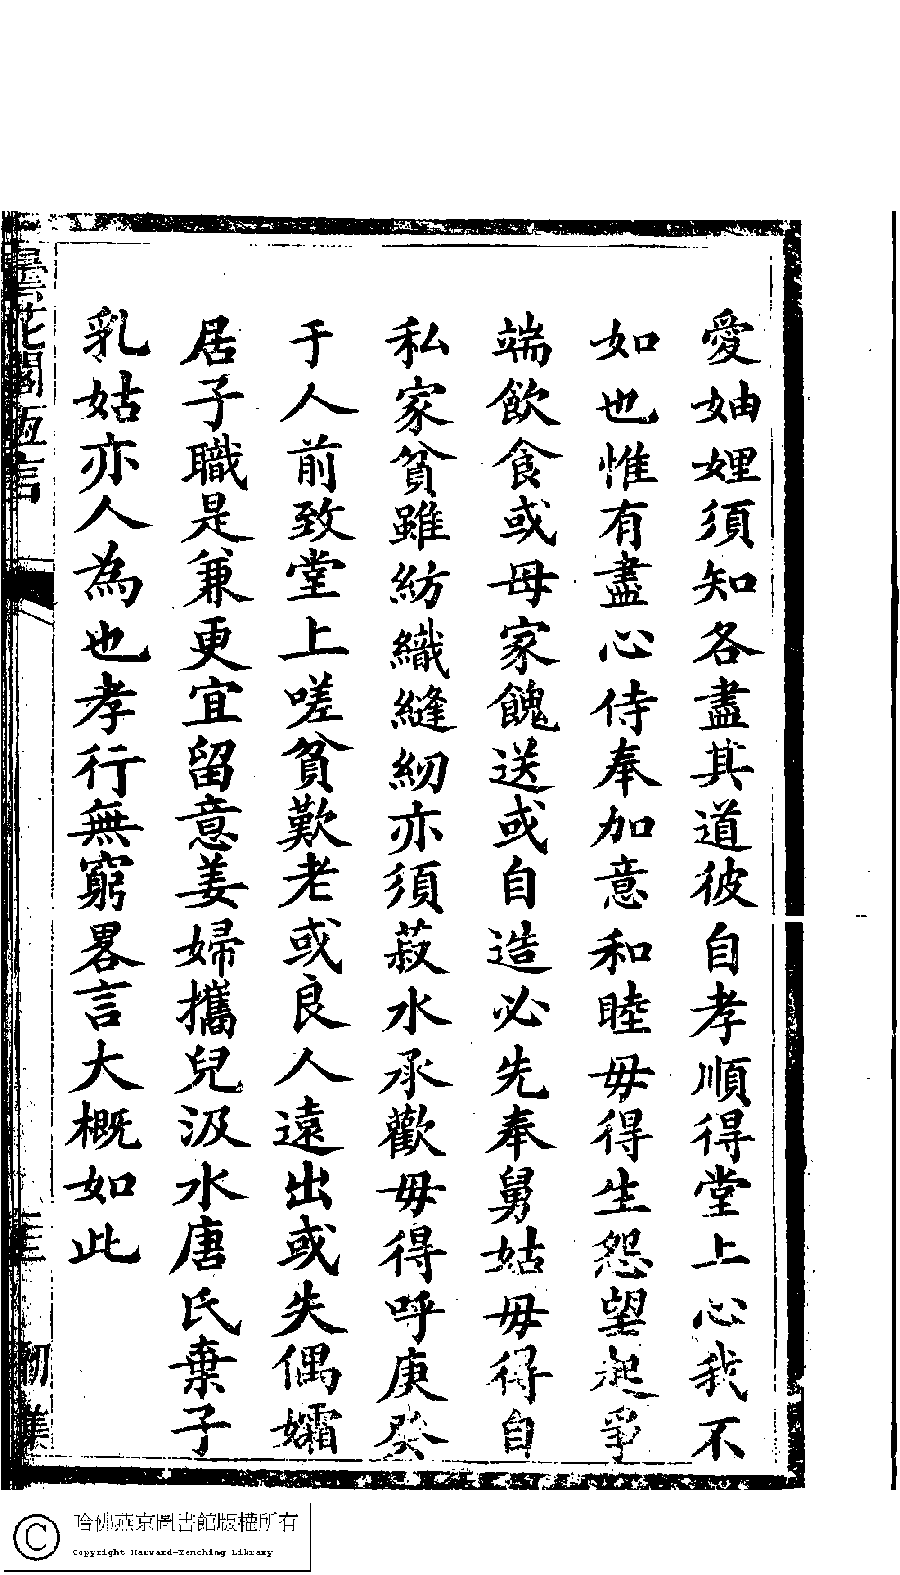 愛妯娌須知各盡其道彼自孝順得堂上心我不
如也惟有盡心侍奉加意和睦毋得生怨望起爭
端飲食或母家餽送或自造必先奉舅姑毋得自
私家貧雖紡織縫紉亦須菽水承歡毋得呼庚癸
于人前致堂上嗟貧歎老或良人遠出或失偶孀
居子職是兼更宜留意姜婦攜兒汲水唐氏棄子
乳姑亦人為也孝行無窮畧言大概如此
曇花閣恆言
初集
哈佛燕京圖書館版權所有
Copyright Harvard-Yenching Library